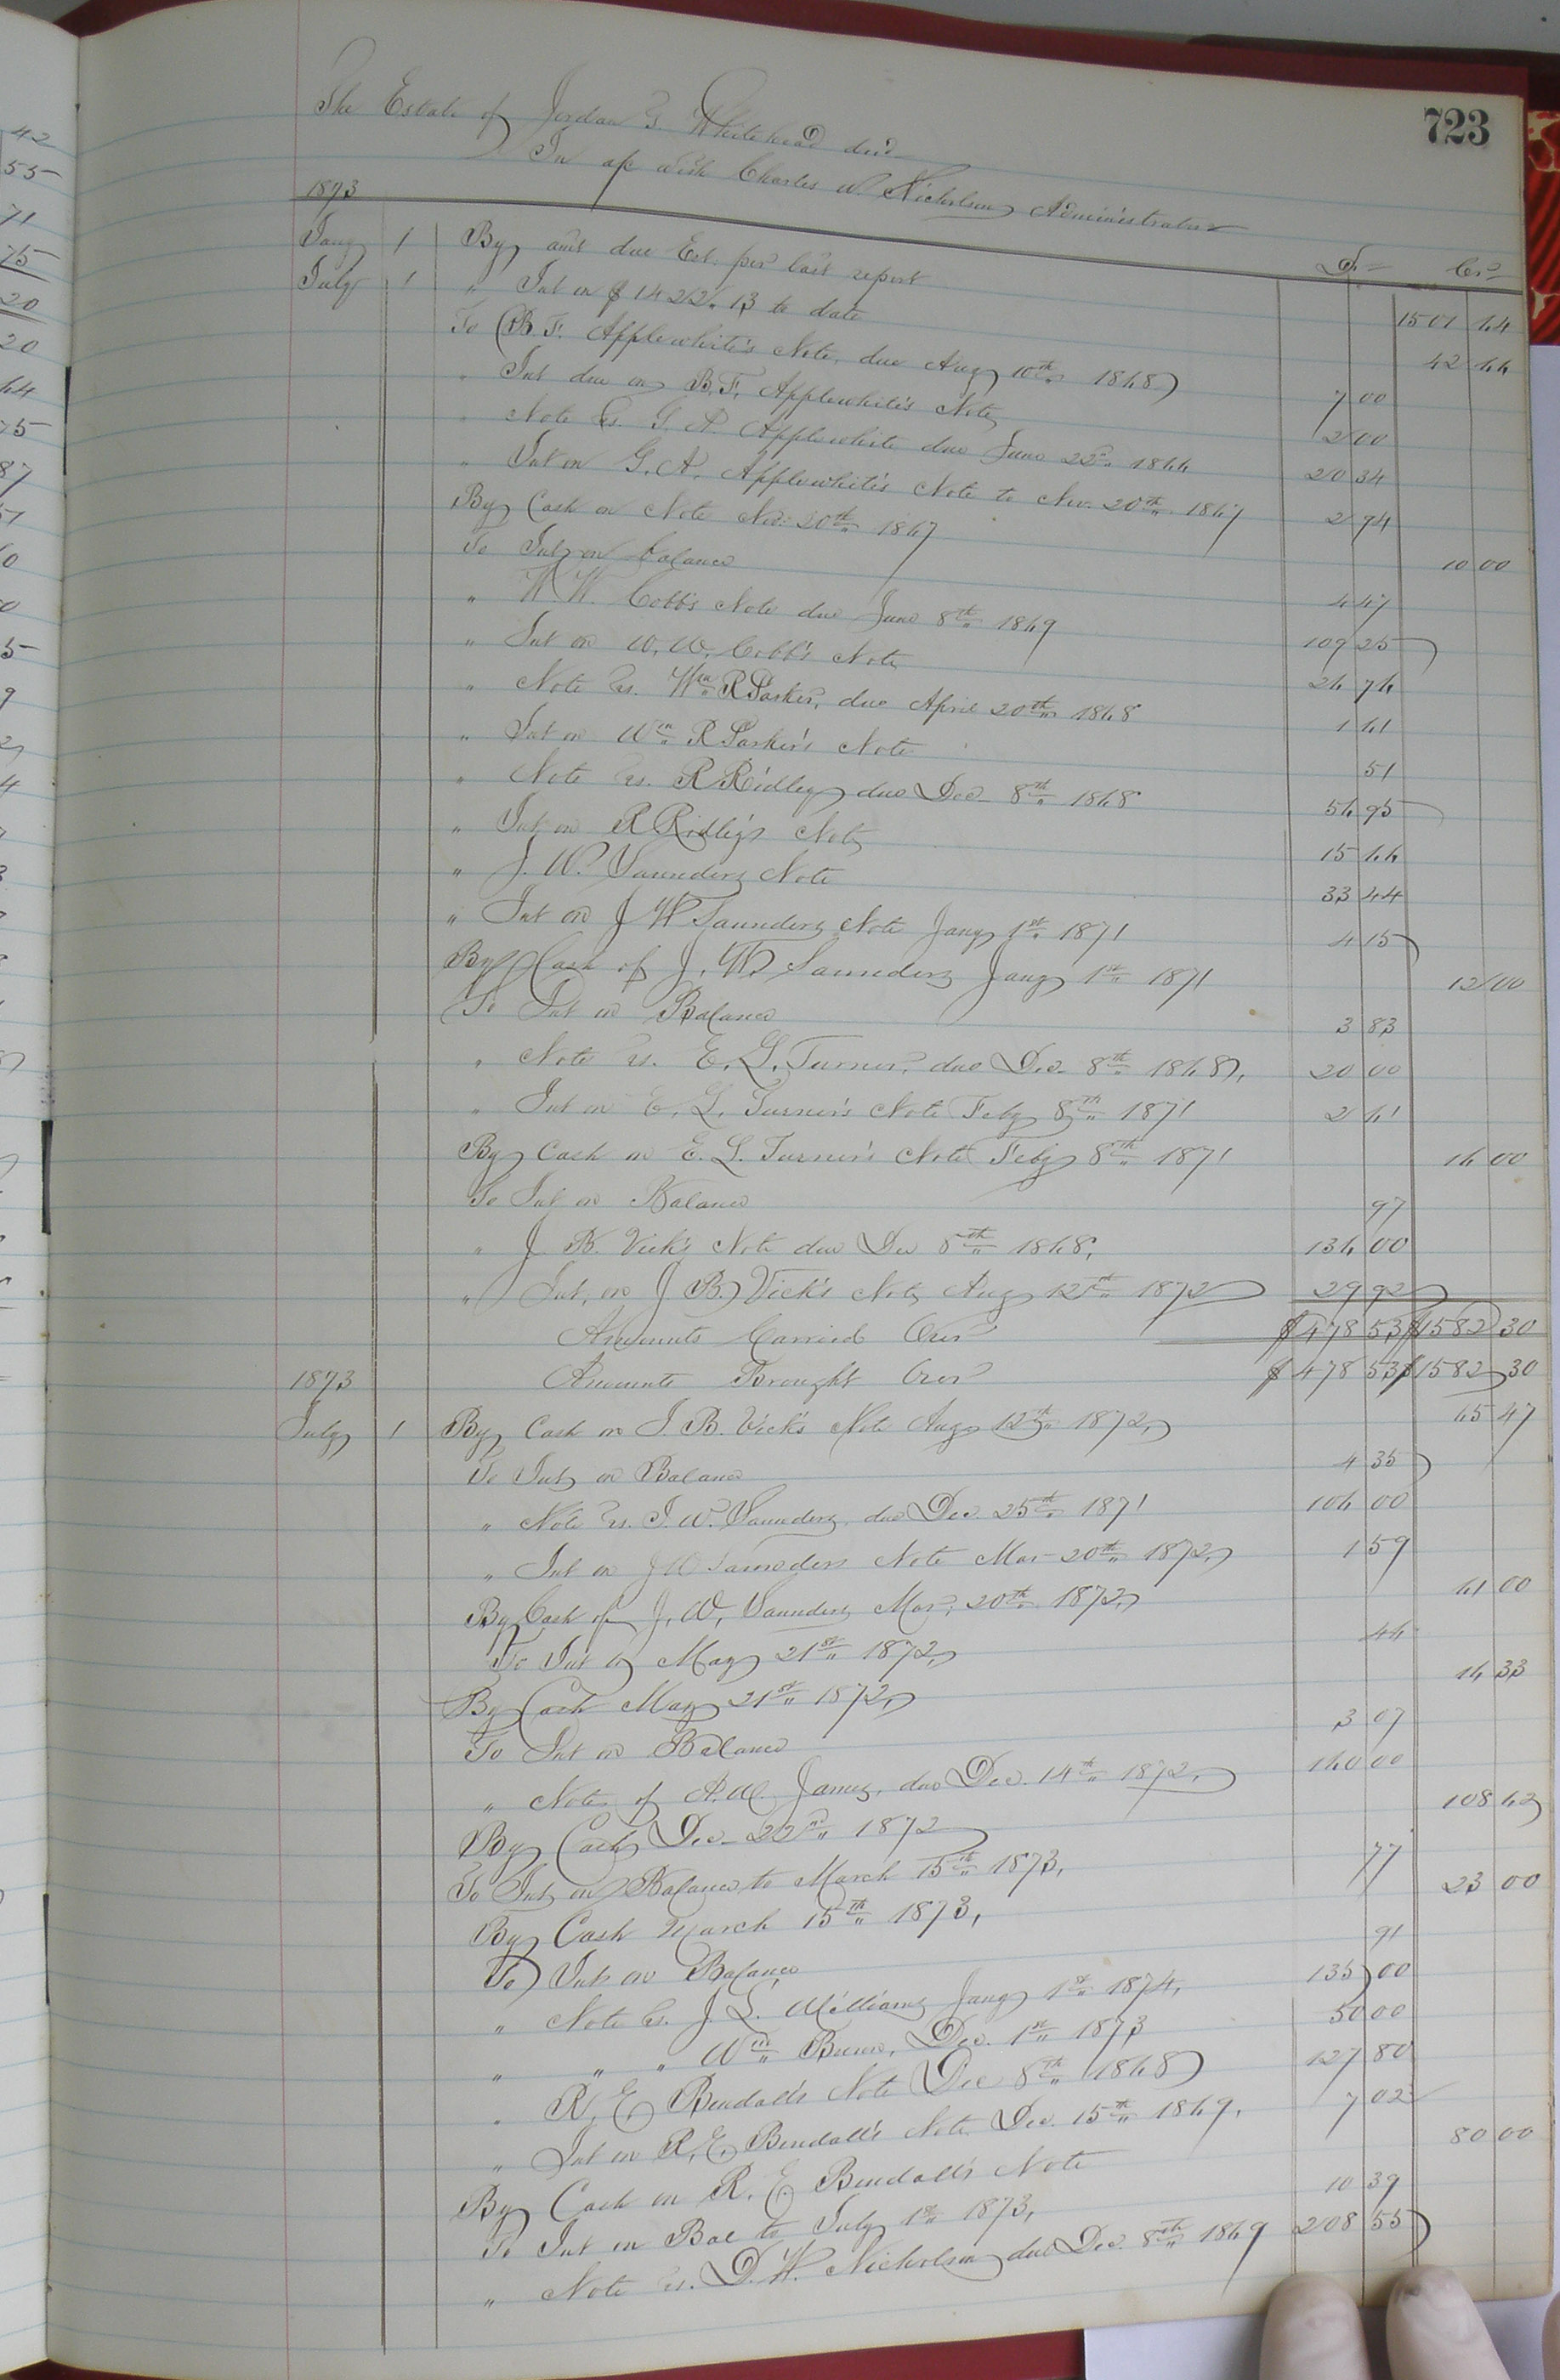 723
The Estate of Jordan G. Whitehead decd
In a/c with Charles W. Nicholson Administrator
1873 Dr Cr
Jany 1 By amt due Est. per last report 1501 64
July 1 " Int on $1422.13 to date 42 66
To B. F. Applewhite's Note, due Aug 10th 1868 7 00
" Int due on B. F. Applewhite's Note 2 00
" Note vs. G. A. Applewhite due June 22d 1866 20 34
" Int on G. A. Applewhite's Note to Nov. 20th 1867 2 94
By Cash on Note Nov. 20th 1867 10 00
To Int on balance 4 47
" W. W. Cobb's Note due June 8th 1869 109 25
" Int on W. W. Cobb's Note 26 76
" Note vs. Wm R Parker, due April 20th 1868 1 61
" Int on Wm R Parker's Note 51
" Note vs. R Ridley due Dec 8th 1868 56 95
" Int on R Ridley's Note 15 66
" J. W. Saunders Note 33 44
" Int on J W Saunders Note Jany 1st 1871 4 15
By Cash of J. W. Saunders Jany 1st 1871 12 00
To Int on Balance 3 83
" Note vs. E. L. Turner, due Dec 8th 1868, 20 00
" Int on E. L. Turner's Note Feby 8th 1871 2 61
By Cash on E. L. Turner's Note Feby 8th 1871 16 00
To Int on Balance 97
" J. B. Vick's Note due Dec 8th 1868, 136 00
" Int, on J B. Vick's Note Aug 12th 1872 29 92
Amounts Carried Over $478 53 $1582 30
1873 Amounts Brought Over $478 53 $1582 30
July 1 By Cash on J. B. Vick's Note Aug 12th 1872, 65 47
To Int on Balance 4 35
" Note vs. J. W. Saunders, due Dec 25th 1871 106 00
" Int on J W Saunders Note Mar 20th 1872, 1 59
By Cash of J. W. Saunders Mar, 20th 1872, 61 00
To Int to May 21st 1872, 46
By Cash May 21st 1872, 16 33
To Int on Balance 3 07
" Note of A. W. James, due Dec. 14th 1872, 160 00
By Cash Dec 22nd 1872 108 63
To Int on Balance to March 15th 1873, 77
By Cash March 15th 1873, 23 00
To Int on Balance 91
" Note vs. J. L. Williams Jany 1st 1874, 135 00
" " " Wm Bunn, Dec. 1st 1873 50 00
" R. E. Bendall's Note Dec 8th 1868 127 80
" Int on R. E. Bendall's Note Dec. 15th 1869, 7 02
By Cash on R. E. Bendall's Note 80 00
To Int on Bal to July 1st 1873, 10 39
" Note vs. D. W. Nicholson due Dec. 8th 1869 208 55